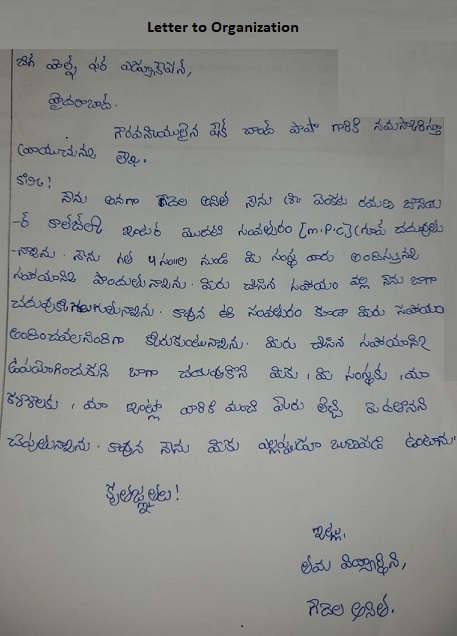 Letter to Organization
బిగ్ హెల్ప్ ఫర్ ఎడ్యుకేషన్,
హైదరాబాద్.
గౌరవనీయులైన షేక్ చాంద్ పాషా గారికి నమస్కరిస్తూ
వ్రాయునది లేఖ.
నేను అనగా గౌడెల అనిత నేను శ్రీ వెంకట రమణ జూనియ
-ర్ కాలేజీలో ఇంటర్ మొదటి సంవత్సరం [m.p.c] గ్రూప్ చదువుతు
-న్నాను. నేను గత 4 సం॥ల నుండి మీ సంస్థ వారు అందిస్తున్న
సహాయాన్ని పొందుతున్నాను. మీరు చేసిన సహాయం వల్ల నేను బాగా
చదువుకోగలుగుతున్నాను. కావున ఈ సంవత్సరం కూడా మీరు సహాయం
అందించవలసిందిగా కోరుకుంటున్నాను. మీరు చేసిన సహాయాన్ని
ఉపయోగించుకుని బాగా చదువుకొని మీకు, మీ సంస్థకు, మా
కళాశాలకు, మా ఇంట్లో వారికి మంచి పేరు తెచ్చి పెడతానని
చెప్పుతున్నాను. కావున నేను మీకు ఎల్లప్పుడూ ఋణపడి ఉంటాను.
కృతజ్ఞతలు!
ఇట్లు,
తమ విద్యార్థిని,
గౌడెల అనిత.